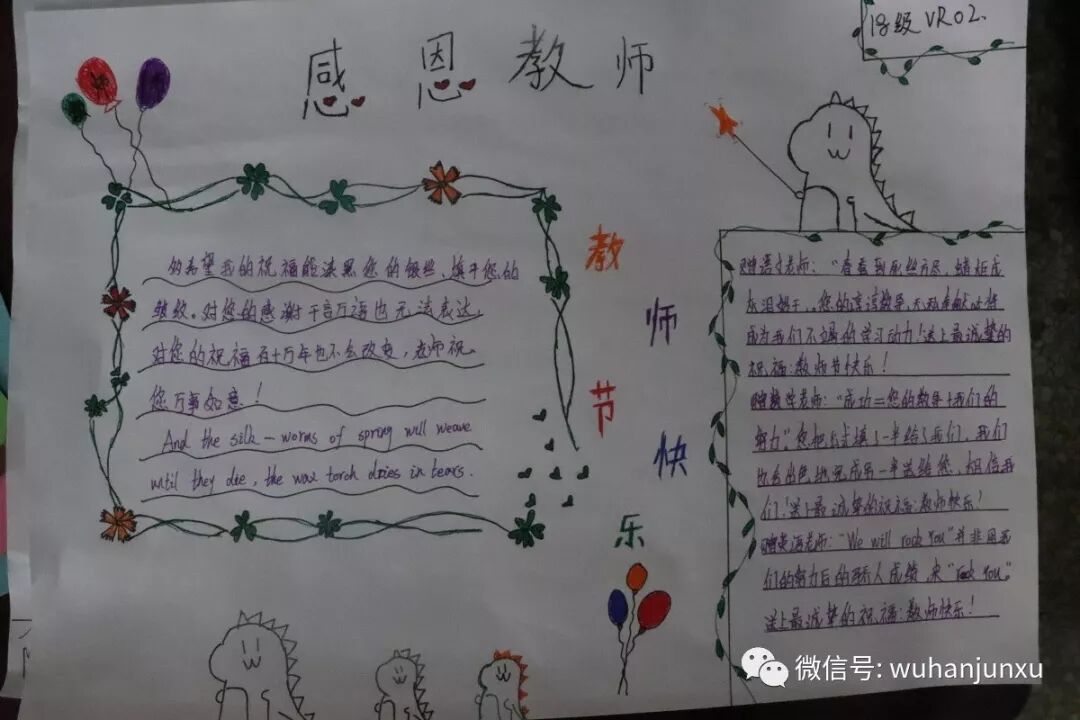 感恩教师
18级 VR02.
教师节快乐
的希望我的祝福能漆黑您的银丝,填平您的
皱纹。对您的感谢千言万语也无法表达,
对您的祝福百十万年也不会改变,老师祝
您万事如意!
And the silk-worms of spring will weave
until they die, the wax torch dries in tears.
赠语文老师:"春蚕到死丝方尽,蜡炬成
灰泪始干,您的谆谆教导,无私奉献必将
成为我们不竭的学习动力!送上最诚挚的
祝福:教师节快乐!
赠数学老师:"成功=您的教导+我们的
努力"您把公式填了一半给了我们,我们
也会出色地完成另一半送给您,相信我
们!送上最诚挚的祝福:教师快乐!
赠英语老师:"We will rock you"并非用我
们的努力后的惊人成绩,来"rock you"。
送上最诚挚的祝福:教师快乐!
微信号: wuhanjunxu